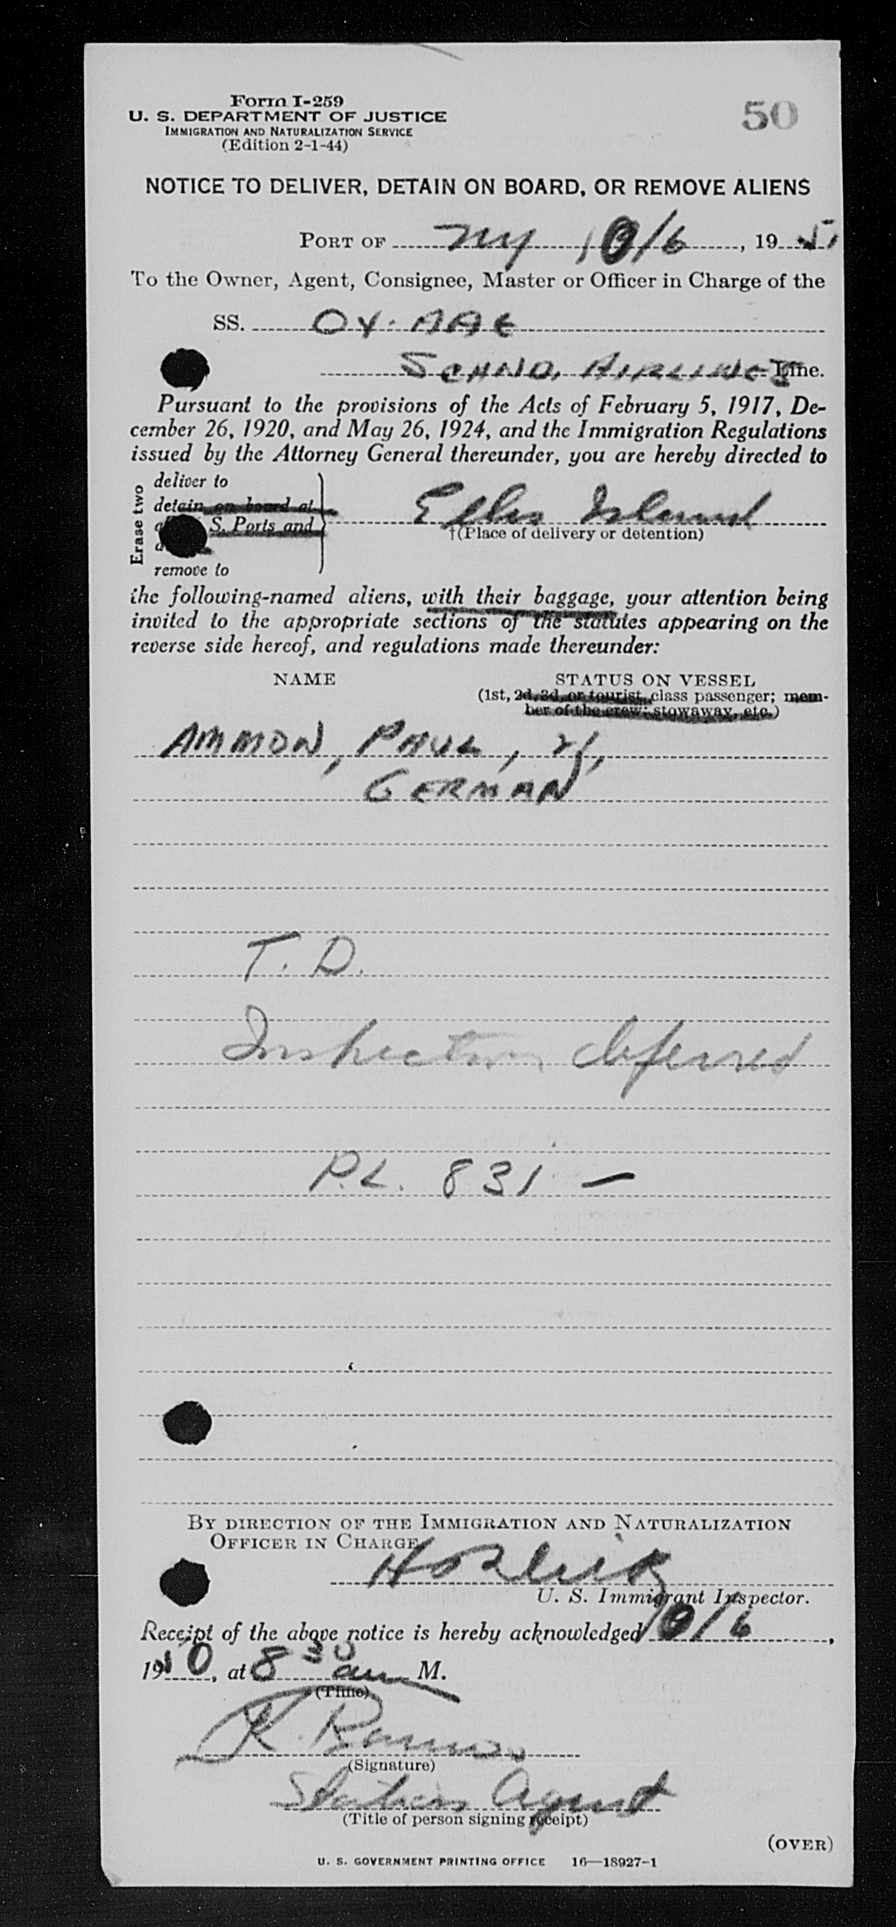 Form I-259
U. S. DEPARTMENT OF JUSTICE
IMMIGRATION AND NATURALIZATION SERVICE
(Edition 2-1-44)
50
NOTICE TO DELIVER, DETAIN ON BOARD, OR REMOVE ALIENS
PORT OF NY 10/6, 19
To the Owner, Agent, Consignee, Master or Officer in Charge of the
SS. OY. AAE
SCAND. AIRLINES Line.
Pursuant to the provisions of the Acts of February 5, 1917, De-
cember 26, 1920, and May 26, 1924, and the Immigration Regulations
issued by the Attorney General thereunder, you are hereby directed to
Erase two
deliver to
detain on board at
S. Ports and
remove to
Ellis Island
†(Place of delivery or detention)
the following-named aliens, with their baggage, your attention being
invited to the appropriate sections of the statutes appearing on the
reverse side hereof, and regulations made thereunder:
NAME STATUS ON VESSEL
(1st, 2d, 3d, or tourist, class passenger; mem-
ber of the crew; stowaway, etc.)
AMMON, PAUL,
GERMAN
T. D.
Inspection deferred
P.L. 831 —
BY DIRECTION OF THE IMMIGRATION AND NATURALIZATION
OFFICER IN CHARGE
U. S. Immigrant Inspector.
Receipt of the above notice is hereby acknowledged 10/6,
19 0, at 8 30 am M.
(Time)
K.
(Signature)
Station Agent
(Title of person signing receipt)
(OVER)
U. S. GOVERNMENT PRINTING OFFICE 16—18927-1